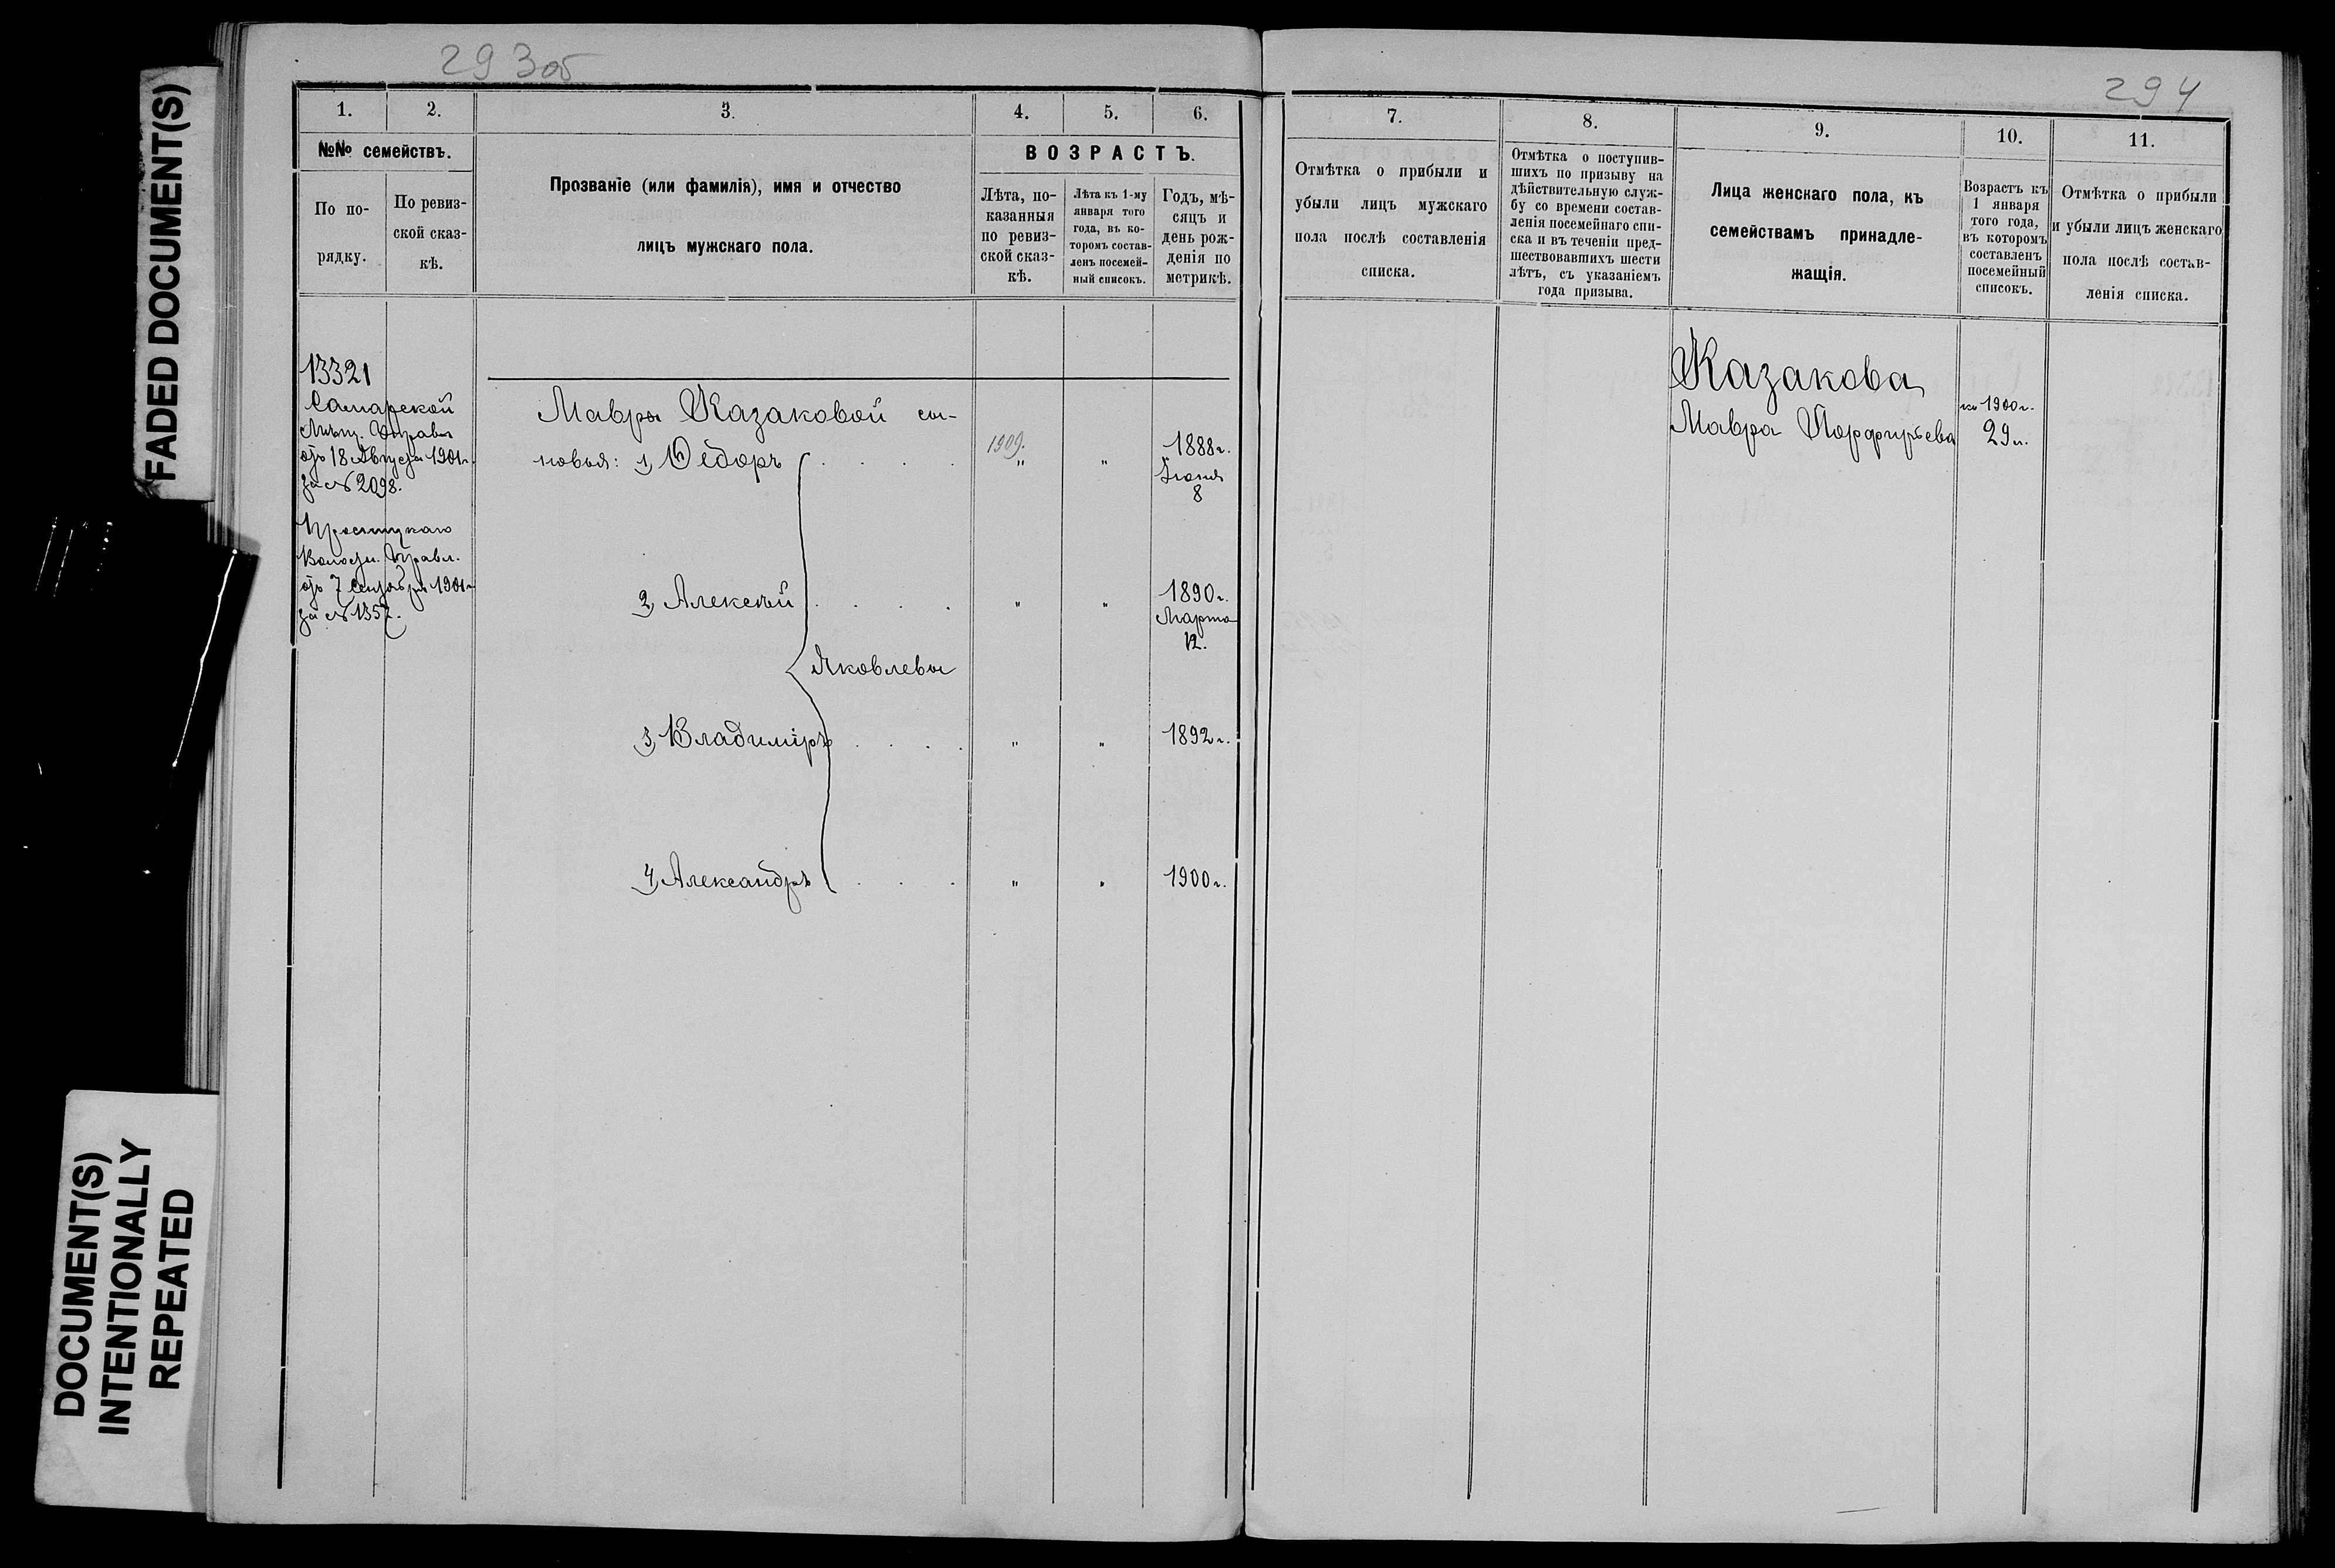 FADED DOCUMENT(S)
DOCUMENT(S)
INTENTIONALLY
REPEATED
293об
1.
2.
3.
4.
5.
6.
№№ семействъ.
По по-
рядку.
По ревиз-
ской сказ-
кѣ.
Прозваніе (или фамилія), имя и отчество
лицъ мужскаго пола.
ВОЗРАСТЪ.
Лѣта, по-
казанныя
по ревиз-
ской сказ-
кѣ.
Лѣта къ 1-му
января того
года, въ ко-
торомъ состав-
ленъ посемей-
ный списокъ.
Годъ, мѣ-
сяцъ и
день рож-
денія по
метрикѣ.
13321
Самарской
Мѣщ. Управы
отъ 18 Августа 1901 г.
за № 2098.
Волостн. Правл.
отъ 7 Сентября 1901 г.
за № 1357.
Мавры Казаковой сы-
новья: 1, Ѳедоръ . . . .
1909.
" "
1888 г.
Іюня
8
2, Алексѣй . . . .
" "
1890 г.
Марта
12.
Яковлевы
3, Владиміръ . . . .
" "
1892 г.
4, Александръ . . .
" "
1900 г.
294
7.
8.
9.
10.
11.
Отмѣтка о прибыли и
убыли лицъ мужскаго
пола послѣ составленія
списка.
Отмѣтка о поступив-
шихъ по призыву на
дѣйствительную служ-
бу со времени состав-
ленія посемейнаго спи-
ска и въ теченіи пред-
шествовавшихъ шести
лѣтъ, съ указаніемъ
года призыва.
Лица женскаго пола, къ
семействамъ принадле-
жащія.
Возрастъ къ
1 января
того года,
въ которомъ
составленъ
посемейный
списокъ.
Отмѣтка о прибыли
и убыли лицъ женскаго
пола послѣ состав-
ленія списка.
Казакова
Мавра Порфирьева
къ 1900 г.
29 л.